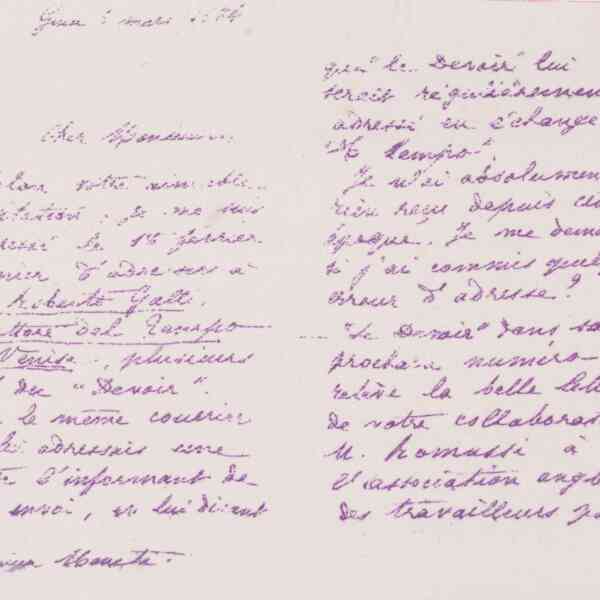 mars
Cher Monsieur,
votre
je me suis
le 12 février
d'adresser à
Roberto Galli,
del Tempo
Venise, plusieurs
du "Devoir".
le même courrier
adressais une
l'informant de
envoi, en lui disant
que "le Devoir" lui
serait régulièremen
adressé en échange
"Il Tempo".
Je n'ai absolumen
rien reçu depuis ce
époque. Je me deman
si j'ai commis quel
erreur d'adresse?
"Le Devoir" dans so
prochain numéro
relève la belle let
de votre collaborat
M. Romussi à
l'association angl
des travailleurs p